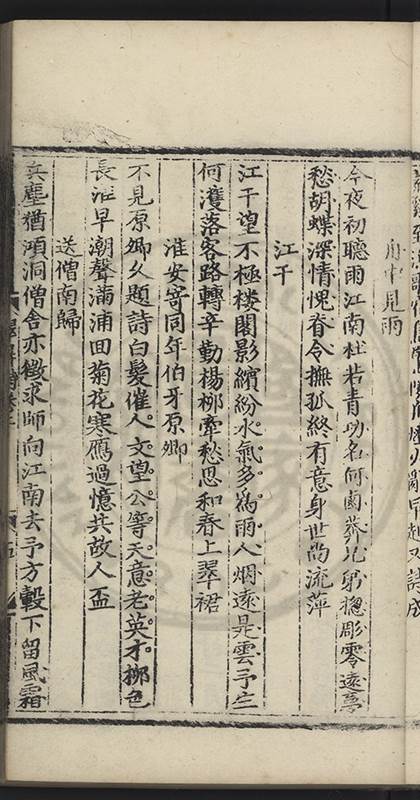 舟中見雨
今夜初聽雨江南杜若青功名何鹵莽兄弟總彫零遠夢
愁胡蝶深情愧脊令撫孤終有意身世尚流萍
江干
江干望不極樓閣影繽紛水氣多爲雨人烟遠是雲予生
何濩落客路轉辛勤楊柳牽愁思和春上翠裙
淮安寄同年伯牙原卿
不見原卿久題詩白髮催人文望公等天意老英才揶色
長淮早潮聲滿浦回菊花寒應過憶共故人盃
送僧南歸
兵塵猶澒洞僧舍亦徵求師向江南去予方轂下留風霜